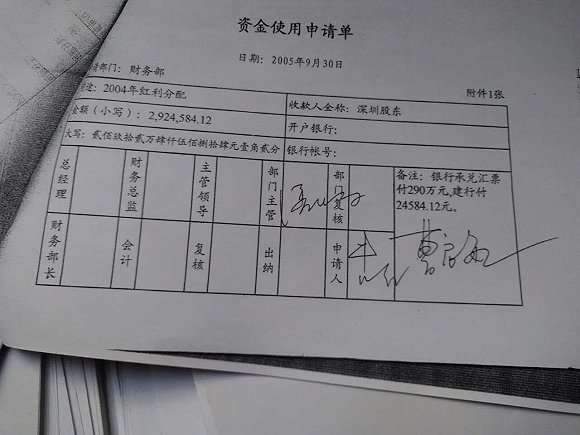 资金使用申请单
日期：2005年9月30日
请部门：财务部
附件1张
途：2004年红利分配
收款人全称：深圳股东
金额（小写）：2,924,584.12
开户银行：
大写：贰佰玖拾贰万肆仟伍佰捌拾肆元壹角贰分
银行帐号：
总经理
财务总监
主管领导
部门主管
部门复核
备注：银行承兑汇票
付290万元，建行付
24584.12元。
财务部长
会计
复核
出纳
申请人